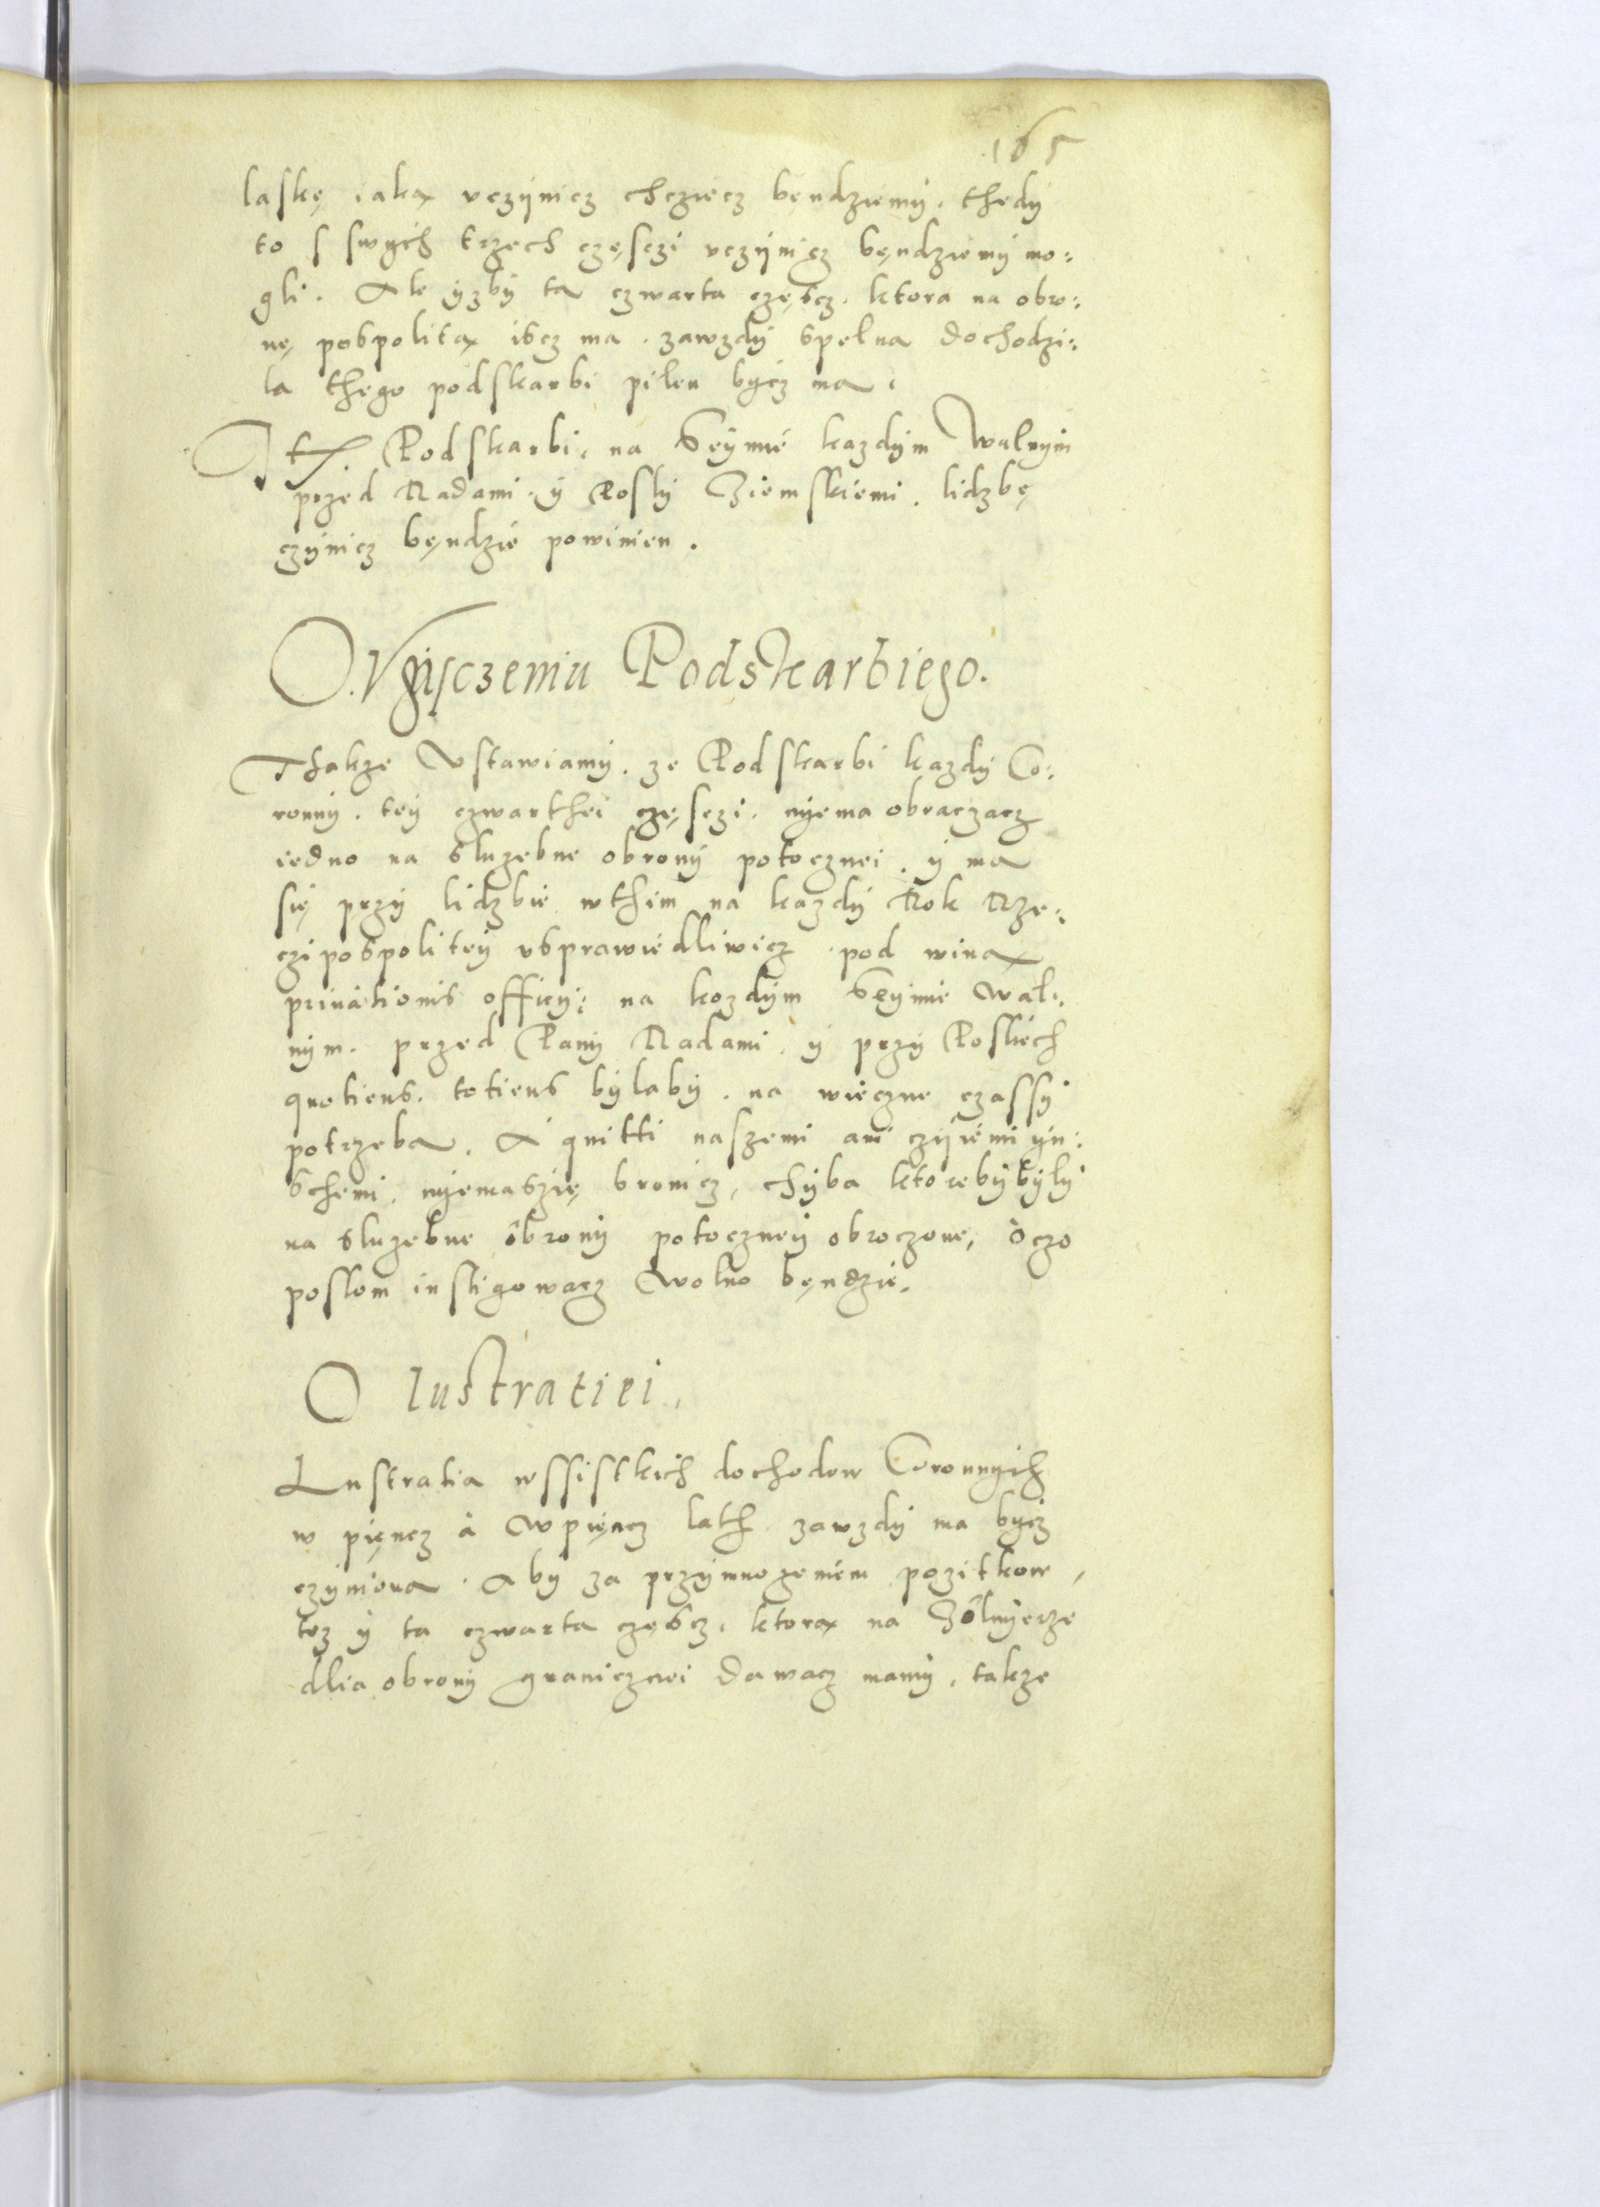 165
laskę iaką vczÿnicz chcziecz bęndziemÿ. thedÿ
to s swÿch trzech częsczi vczÿnicz bęndziemÿ mo:
gli. Ale ÿzbÿ ta czwarta częscz. ktora na obro:
nę pospolitą iscz ma. zawzdÿ spełna dochodzi:
la thego podskarbi pilen bÿcz ma.
Podskarbi, na Sęÿmie kazdÿm Walnÿm
przed Radami ÿ Poslÿ Ziemskiemi. lidzbę
czÿnicz bęndzie powinien.
O Vÿsczeniu Podskarbiego.
Thakze Vstawiamÿ. ze Podskarbi kazdÿ Co:
ronnÿ. teÿ czwarthei częsczi. nÿema obraczacz
iedno na sluzebne obronÿ potocznei. ÿ ma
się przÿ lidzbie wthim na kazdÿ Rok Rze:
czipospoliteÿ vsprawiedliwicz pod winą
priuationis officÿ: na kozdÿm Sęÿmie wal:
nÿm. przed Panÿ Radami. ÿ przÿ Posliech
quotiens. totiens bÿlabÿ. na wieczne czassÿ
potrzeba. A quitti naszemi ani czÿiemi ÿn:
schemi. nÿemaszię bronicz, chÿba ktorebÿbÿlÿ
na sluzebne obronÿ potoczneÿ obroczone, oczo
poslom instigowacz wolno bęndzie.
O lustratiei.
Lustratia wssistkich dochodow Coronnÿch
w pięncz à w pięncz lath zawzdÿ ma bÿcz
czÿniona. Abÿ za przÿmnozeniem pozitkow,
tez ÿ ta czwarta częscz, ktorą na Zolnÿerze
dlia obronÿ granicznei dawacz mamÿ, takze